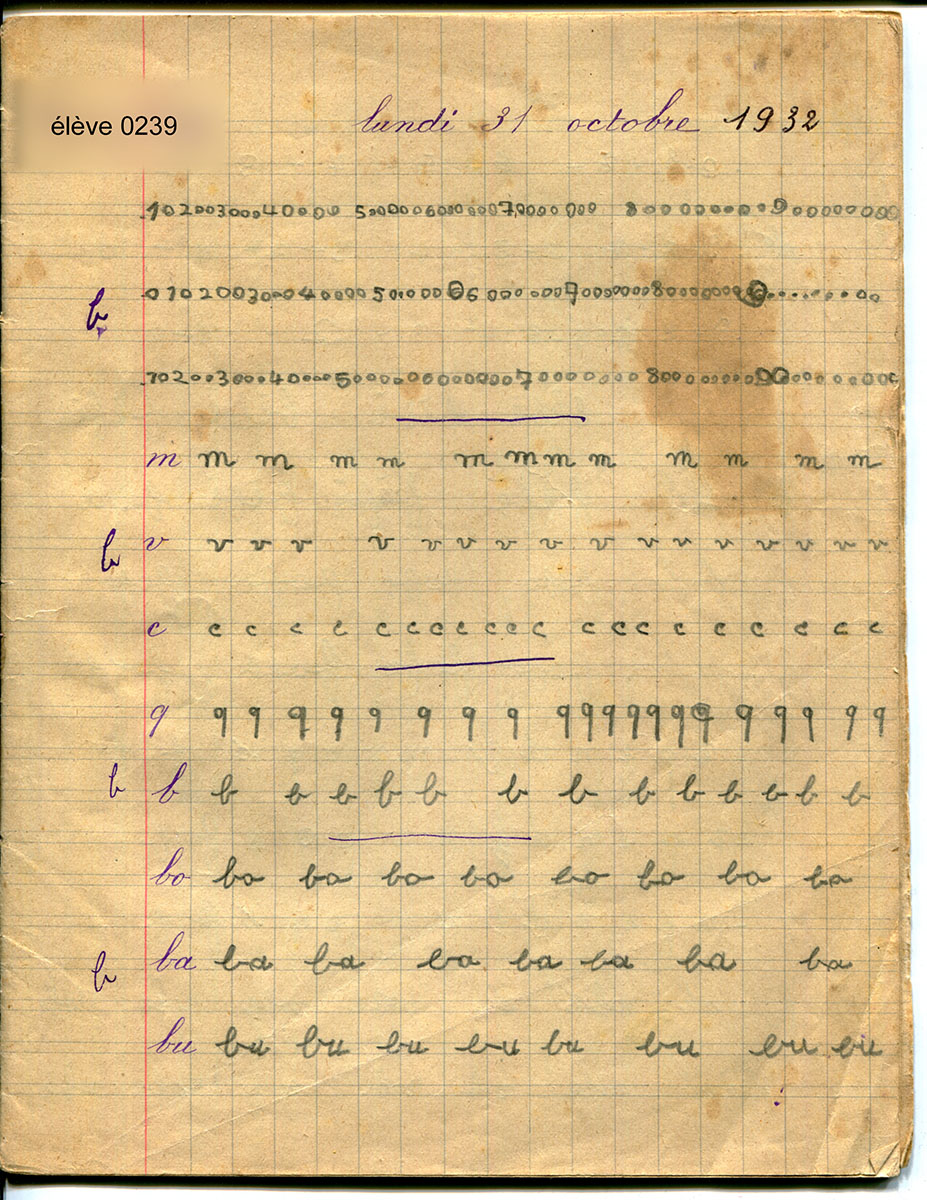 élève 0239
lundi 31 octobre 1932
1020030004 0000 50000060000007000000 00 8000000000900000000
b 010200300040000500000660000007000000080000000900000000
1020030004000050000006000000700000008000000090000000
m m m m m m m m m m m m m
b v v v v v v v v v v v v v v v v v
c c c c c c c c c c c c c c c c c c c c c
q q q q q q q q q q q q q q q q q q q q q
b b b b b b b b b b b b b b b
bo bo bo bo bo bo bo bo bo
b ba ba ba ba ba ba ba ba
bu bu bu bu bu bu bu bu bu